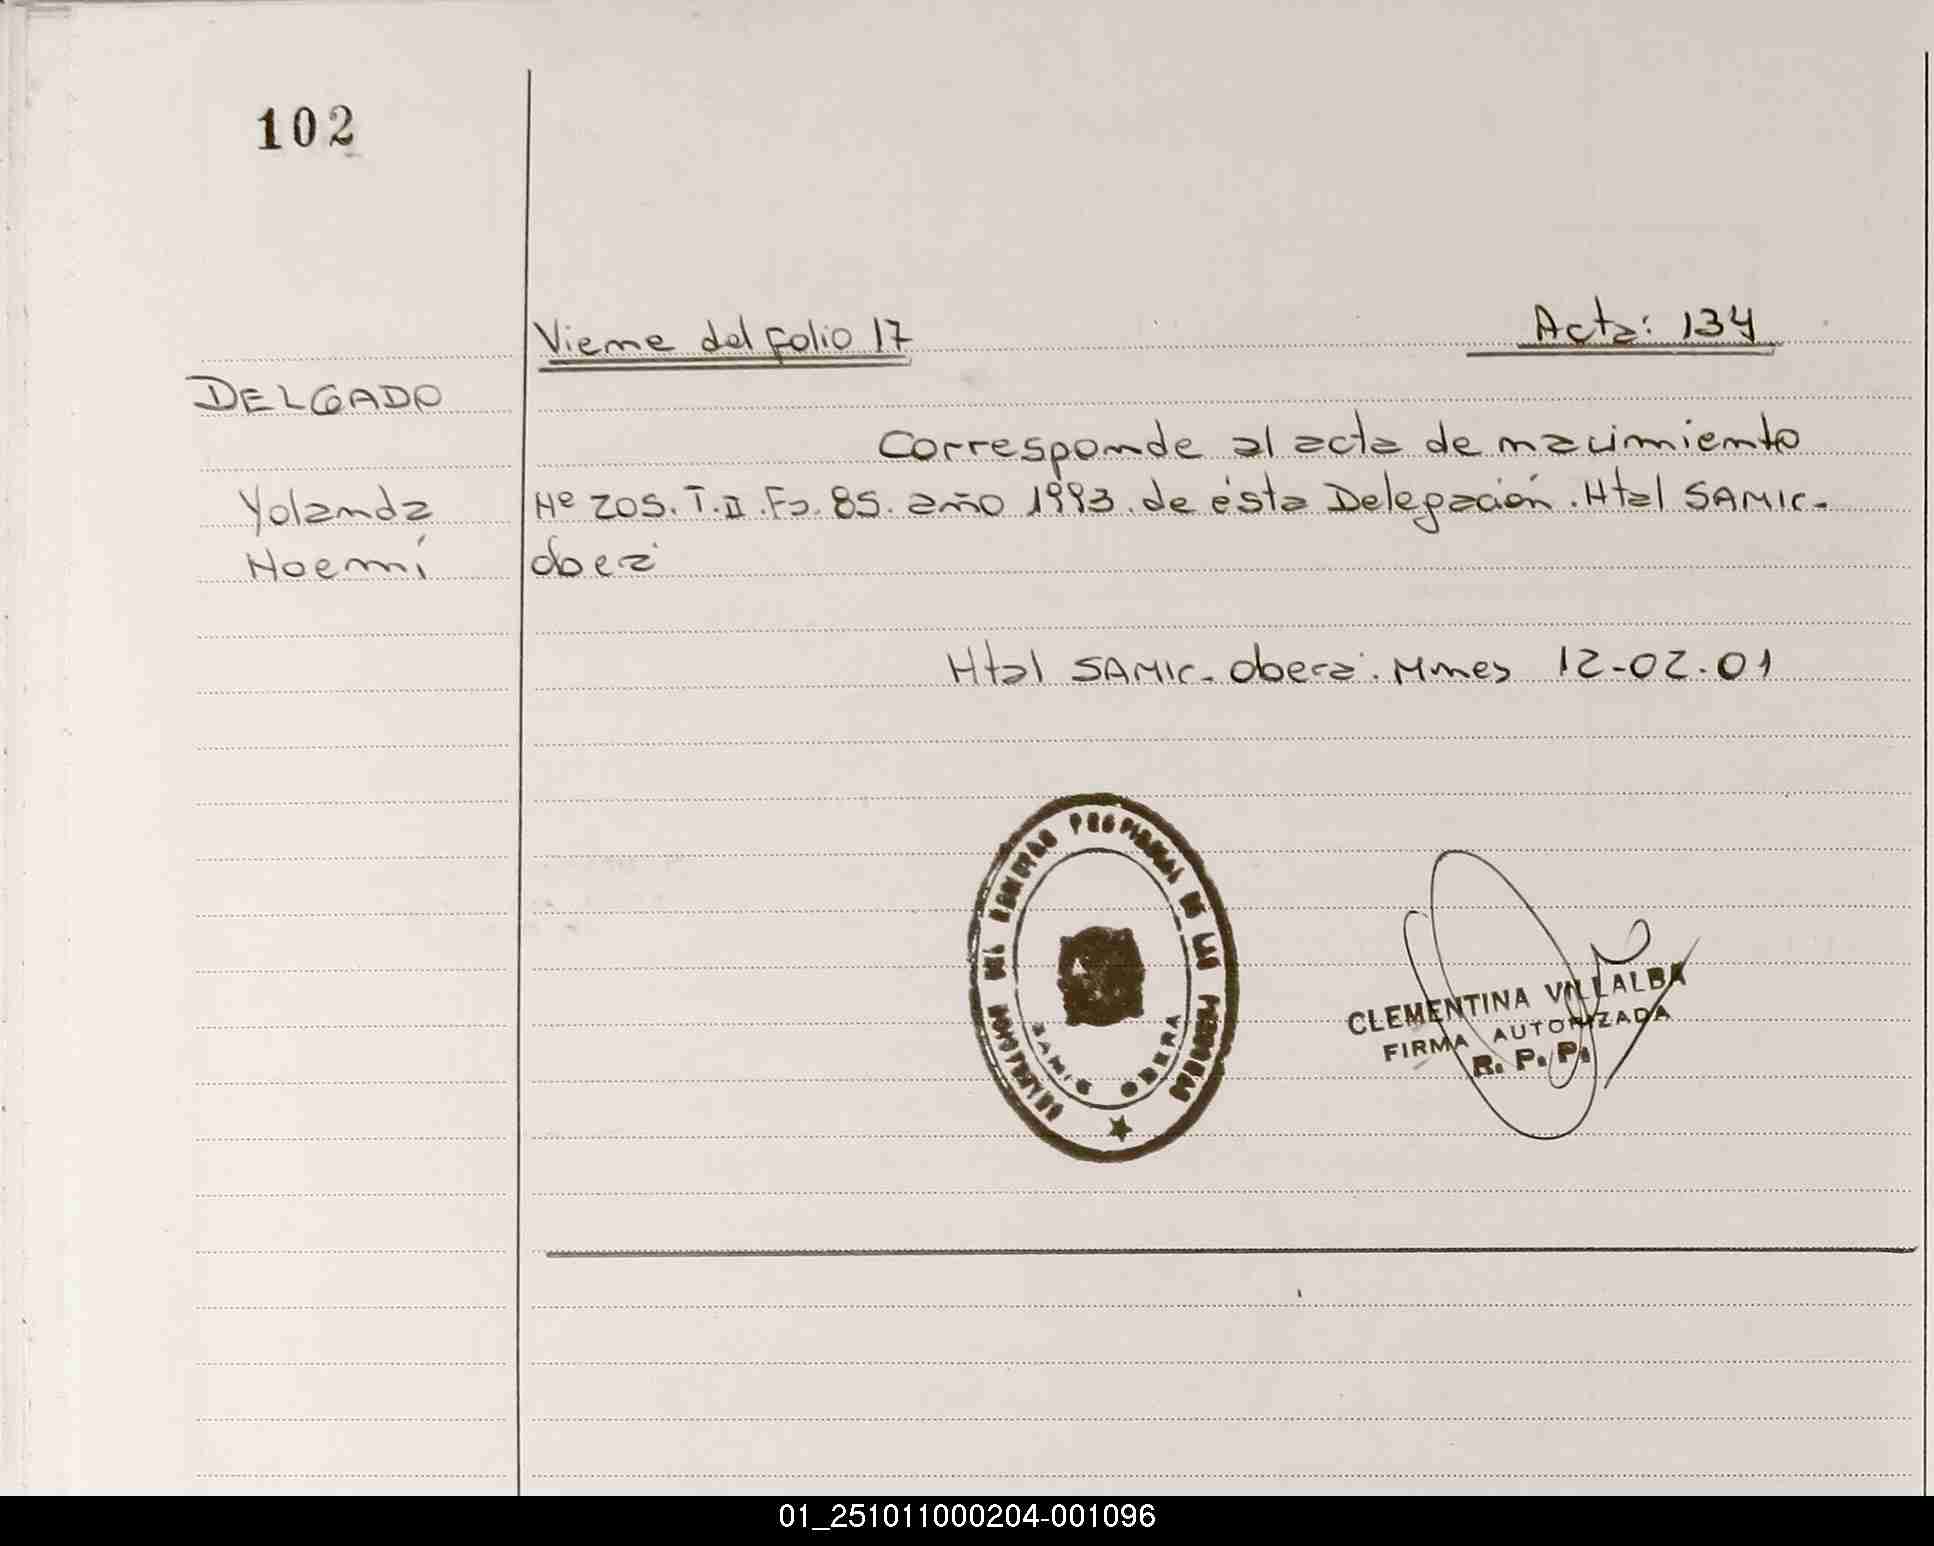 102
Viene del folio 17
Acta: 134
DELGADO
Corresponde al acta de nacimiento
Yolanda
Nº 205. T. II. Fo. 85. año 1993. de ésta Delegación. Htal SAMIC.
Noemí
Oberá
Htal SAMIC. Oberá. Mnes 12-02-01
DELEGACION DEL REGISTRO PROVINCIAL DE LAS PERSONAS
SAMIC OBERA
CLEMENTINA VILLALBA
FIRMA AUTORIZADA
R. P. P.
01_251011000204-001096